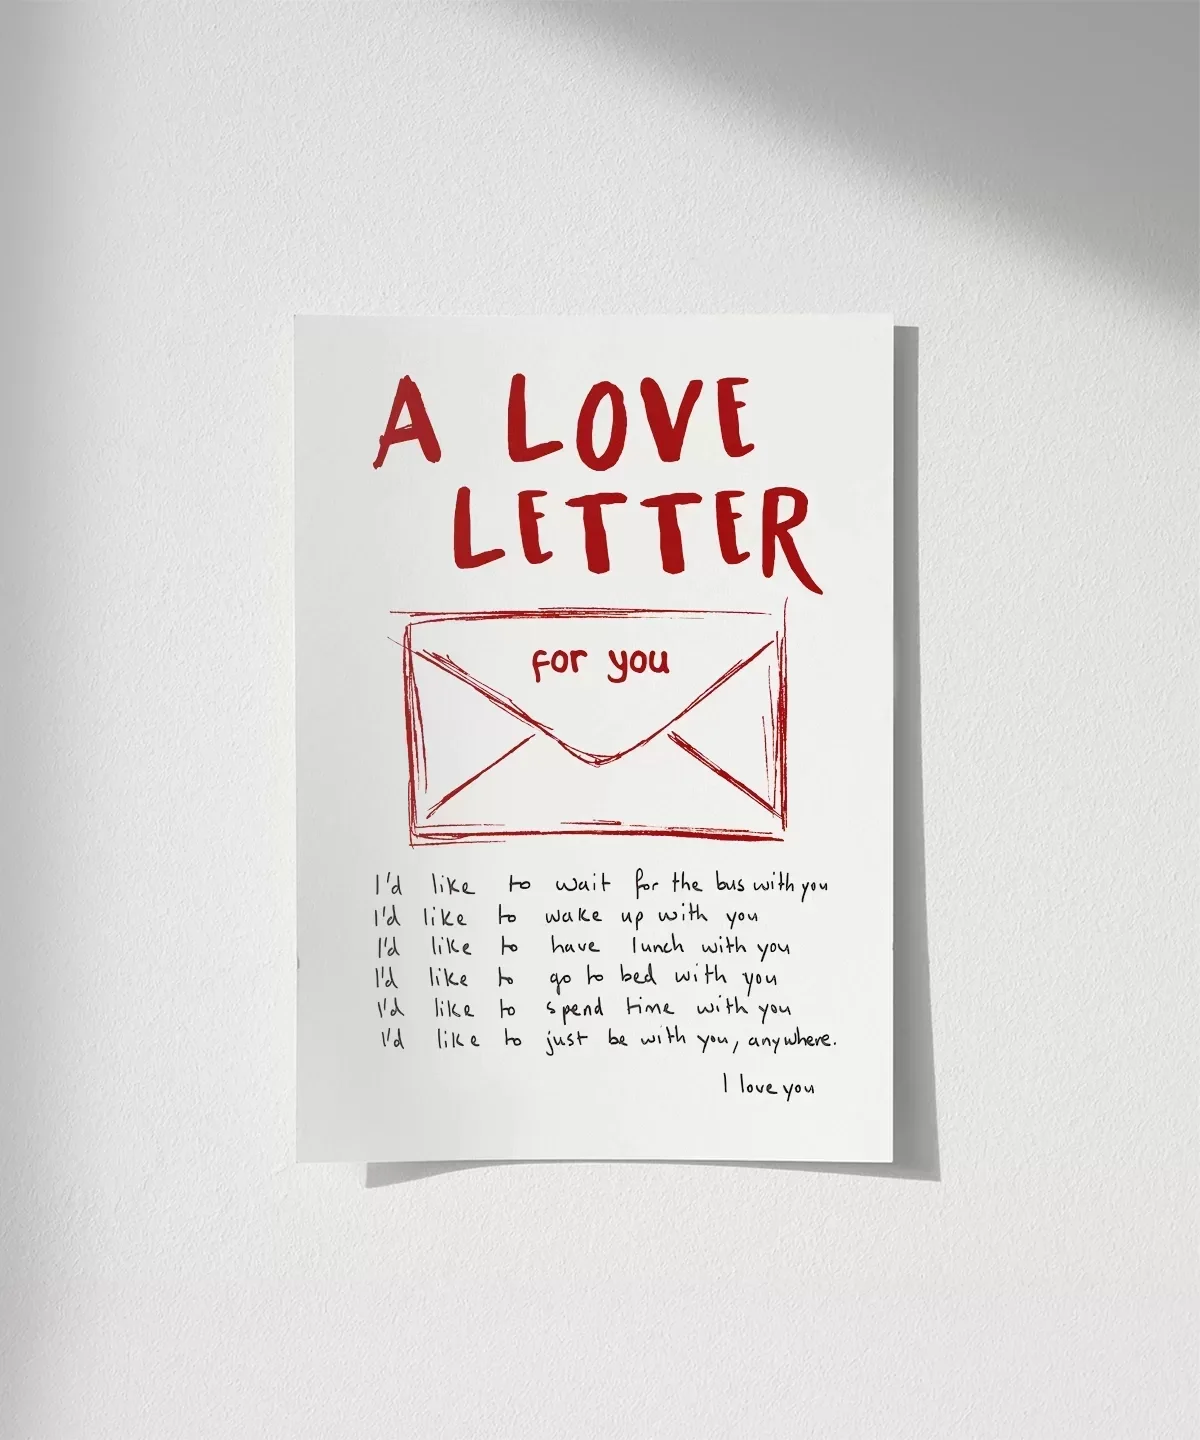 A LOVE
LETTER
for you
I'd like to wait for the bus with you
I'd like to wake up with you
I'd like to have lunch with you
I'd like to go to bed with you
I'd like to spend time with you
I'd like to just be with you, anywhere.
I love you